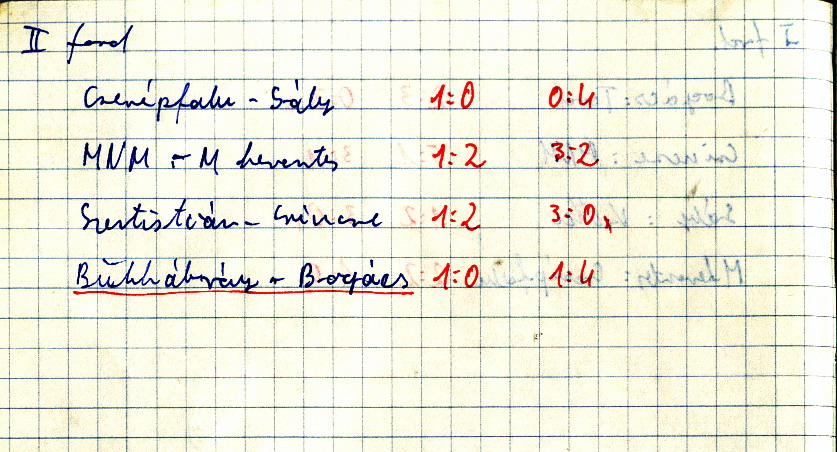 II ford
Cserépfalu - Sály 1:0 0:4
MNM - M keresztes 1:2 3:2
Szentistván - Csincse 1:2 3:0
Bükkábrány - Bogács 1:0 1:4